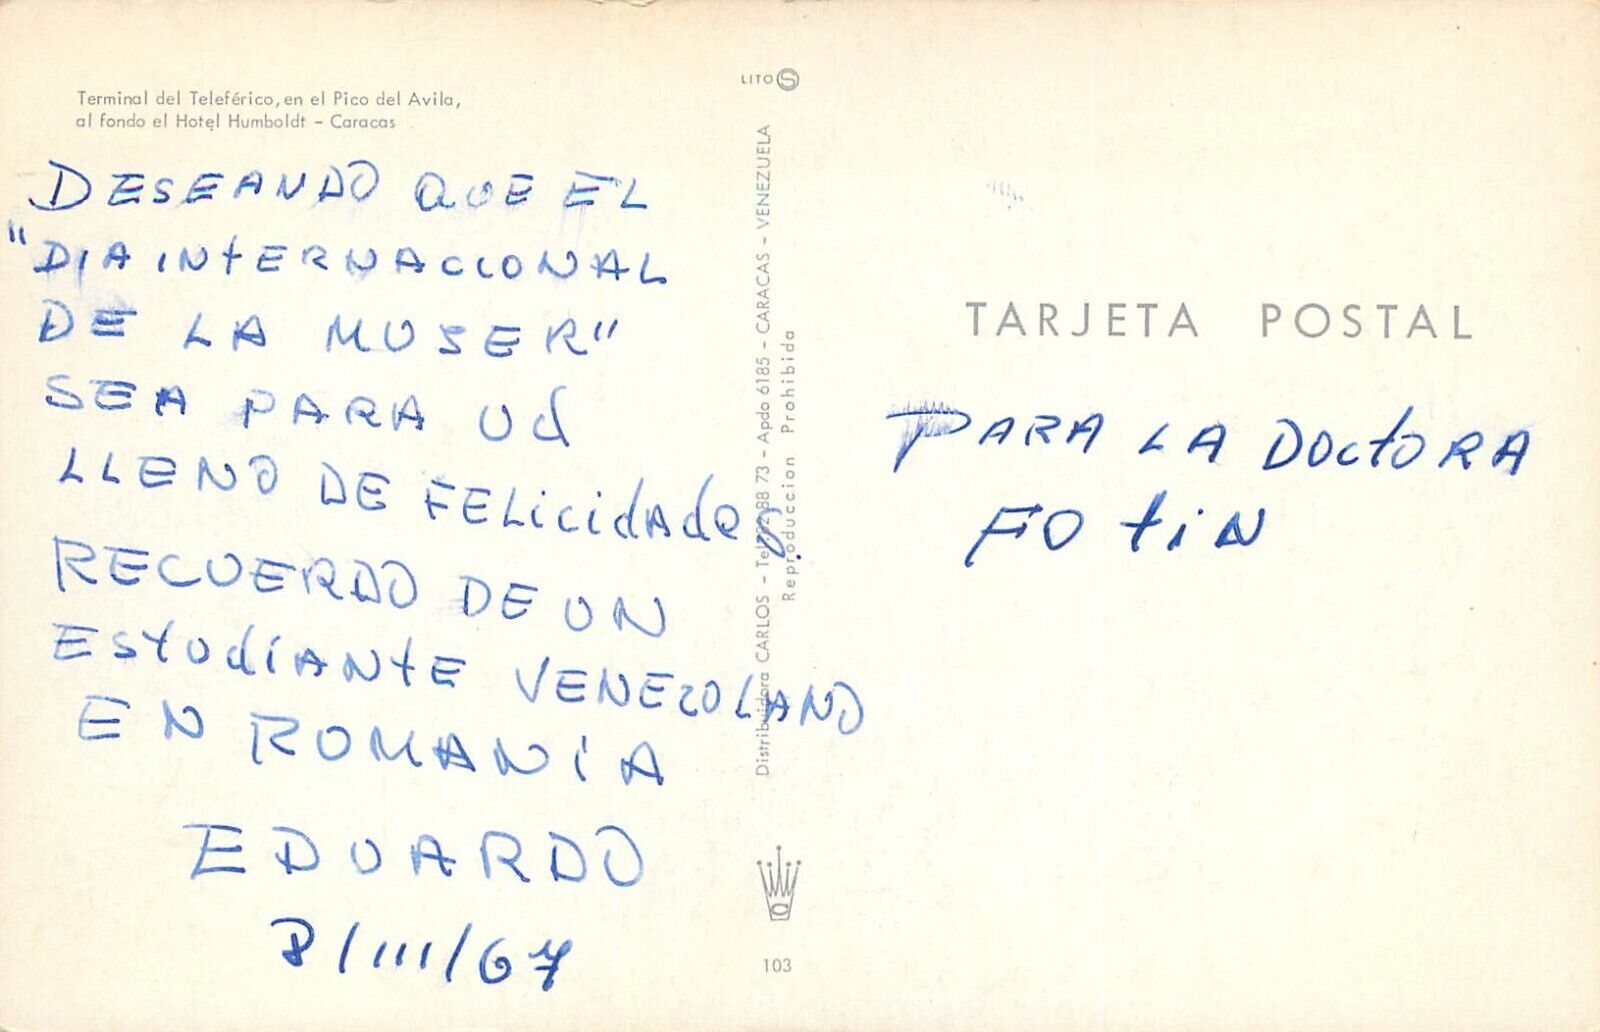 Terminal del Teleférico, en el Pico del Avila,
al fondo el Hotel Humboldt - Caracas
DESEANDO QUE EL
"DIA INTERNACIONAL
DE LA MUSER"
SEA PARA Ud
LLENO DE FELICIDADES.
RECUERDO DE UN
ESTUDIANTE VENEZOLANO
EN ROMANIA
EDUARDO
8/III/67
LITO S
Distribuidora CARLOS - Tel. 72 88 73 - Apdo 6185 - CARACAS - VENEZUELA
Reproduccion Prohibida
C
103
TARJETA POSTAL
PARA LA DOCTORA
FOTIN